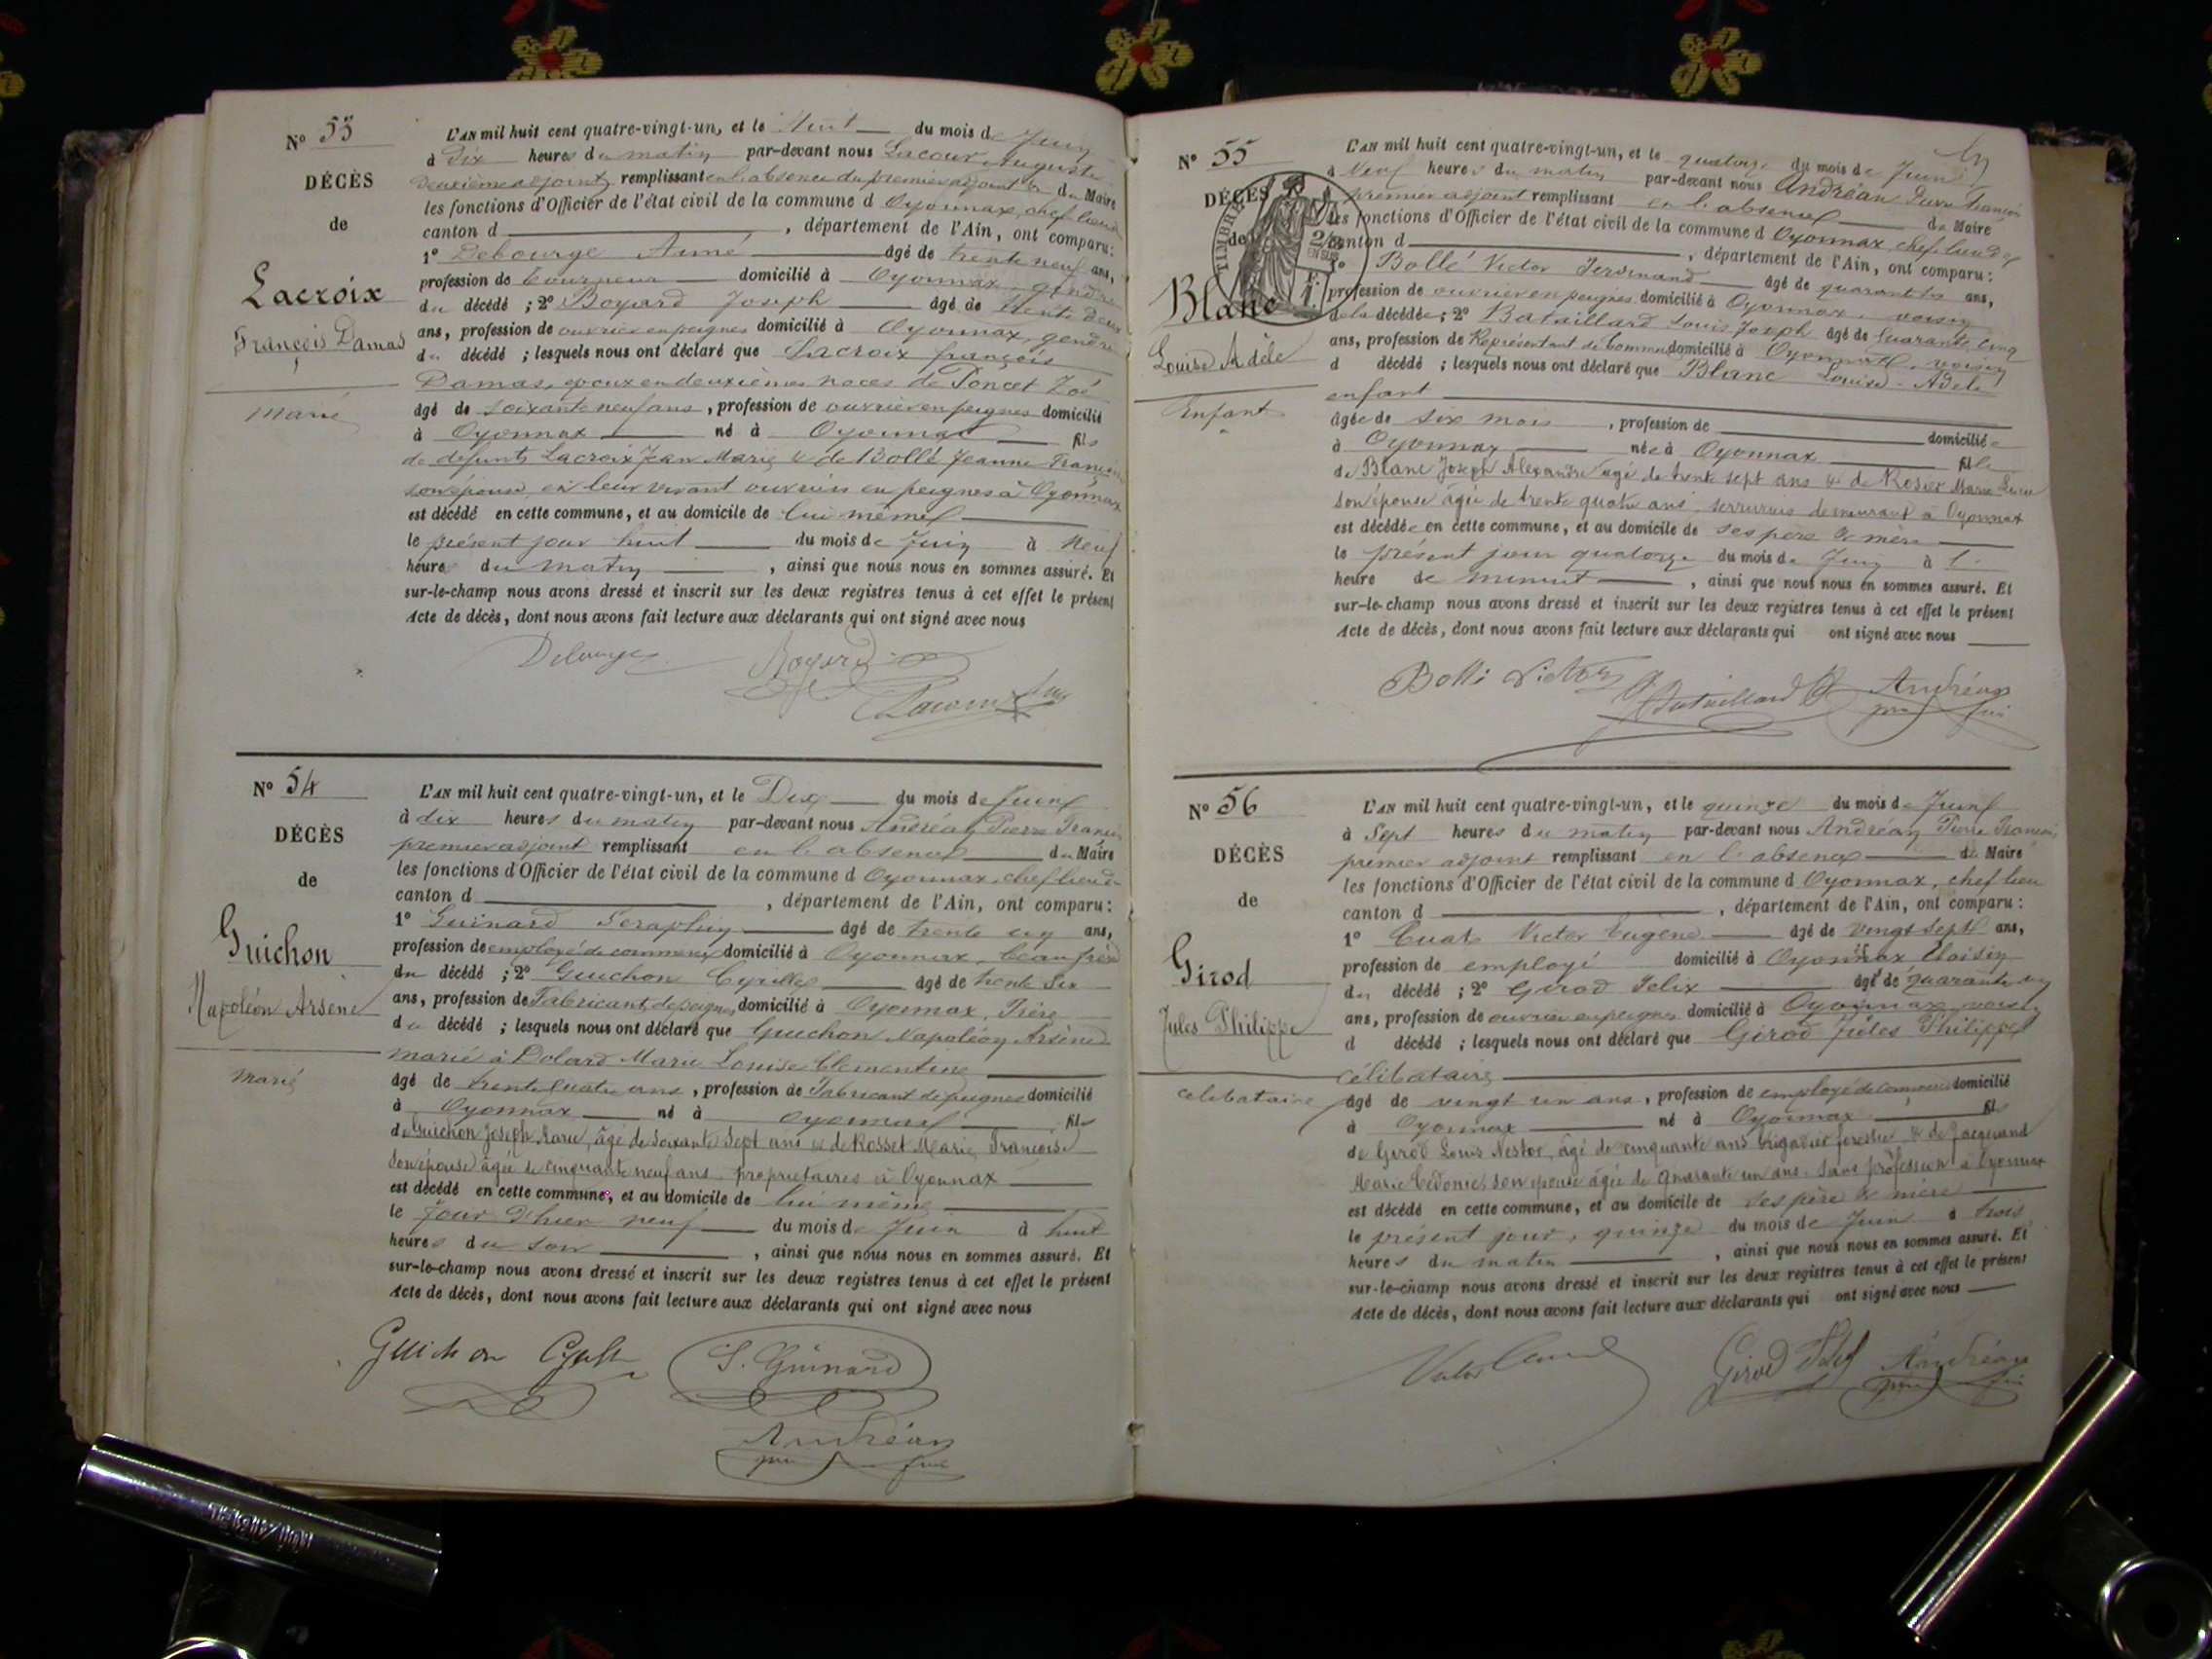 N° 53
DÉCÈS
de
Lacroix
François Damas
Marié
L'AN mil huit cent quatre-vingt-un, et le Huit du mois de Juin
à Dix heures du matin par-devant nous Lacour Auguste
deuxième adjoint remplissant en l'absence du premier adjoint & du Maire
les fonctions d'Officier de l'état civil de la commune d Oyonnax, chef lieu de
canton d , département de l'Ain, ont comparu:
1° Debourge Aimé âgé de trente neuf ans,
profession de tourneur domicilié à Oyonnax, gendre
du décédé ; 2° Boyard Joseph âgé de trente deux
ans, profession de ouvrier en peignes domicilié à Oyonnax, gendre
du décédé ; lesquels nous ont déclaré que Lacroix françois
Damas, époux en deuxièmes noces de Poncet Zoé
âgé de soixante neuf ans, profession de ouvrier en peignes domicilié
à Oyonnax né à Oyonnax fils
de défunts Lacroix Jean Marie & de Bollé Jeanne Françoise
son épouse, en leur vivant ouvriers en peignes à Oyonnax
est décédé en cette commune, et au domicile de lui même
le présent jour huit du mois de Juin à Neuf
heures du matin , ainsi que nous nous en sommes assuré. Et
sur-le-champ nous avons dressé et inscrit sur les deux registres tenus à cet effet le présent
Acte de décès, dont nous avons fait lecture aux déclarants qui ont signé avec nous
Debourge Boyard
Lacour
N° 54
DÉCÈS
de
Guichon
Napoléon Arsène
Marié
L'AN mil huit cent quatre-vingt-un, et le Dix du mois de Juin
à dix heures du matin par-devant nous Andréan Pierre François
premier adjoint remplissant en l'absence du Maire
les fonctions d'Officier de l'état civil de la commune d Oyonnax, chef lieu de
canton d , département de l'Ain, ont comparu:
1° Guinard Séraphin âgé de trente un ans,
profession de employé de commerce domicilié à Oyonnax, beau frère
du décédé ; 2° Guichon Cyrille âgé de trente six
ans, profession de Fabricant de peignes domicilié à Oyonnax, Frère
du décédé ; lesquels nous ont déclaré que Guichon Napoléon Arsène
marié à Dolard Marie Louise Clementine
âgé de trente quatre ans, profession de Fabricant de peignes domicilié
à Oyonnax né à Oyonnax fils
de Guichon Joseph Marie, âgé de soixante sept ans & de Rosset Marie Françoise
son épouse âgée de cinquante neuf ans propriétaires à Oyonnax
est décédé en cette commune, et au domicile de lui même
le jour d'hier neuf du mois de Juin à huit
heures du soir , ainsi que nous nous en sommes assuré. Et
sur-le-champ nous avons dressé et inscrit sur les deux registres tenus à cet effet le présent
Acte de décès, dont nous avons fait lecture aux déclarants qui ont signé avec nous
Guichon S. Guinard
Andréan
N° 55
DÉCÈS
de
TIMBRE
Blanc
Louise Adèle
Enfant
L'AN mil huit cent quatre-vingt-un, et le quatorze du mois de Juin
à Neuf heures du matin par-devant nous Andréan Pierre François
premier adjoint remplissant en l'absence du Maire
les fonctions d'Officier de l'état civil de la commune d Oyonnax chef lieu de
canton d , département de l'Ain, ont comparu:
1° Bollé Victor Ferdinand âgé de quarante ans,
profession de ouvrier en peignes domicilié à Oyonnax, voisin
de la décédée ; 2° Bataillard Louis Joseph âgé de quarante cinq
ans, profession de Représentant de Commerce domicilié à Oyonnax, voisin
d décédé ; lesquels nous ont déclaré que Blanc Louise Adèle
enfant
âgée de six mois , profession de domiciliée
à Oyonnax née à Oyonnax fille
de Blanc Joseph Alexandre âgé de trente sept ans & de Rosier Marie
son épouse âgée de trente quatre ans demeurant à Oyonnax
est décédée en cette commune, et au domicile de ses père & mère
le présent jour quatorze du mois de Juin à l
heure de minuit , ainsi que nous nous en sommes assuré. Et
sur-le-champ nous avons dressé et inscrit sur les deux registres tenus à cet effet le présent
Acte de décès, dont nous avons fait lecture aux déclarants qui ont signé avec nous
Bollé Victor Bataillard Andréan
N° 56
DÉCÈS
de
Girod
Jules Philippe
Célibataire
L'AN mil huit cent quatre-vingt-un, et le quinze du mois de Juin
à Sept heures du matin par-devant nous Andréan Pierre François
premier adjoint remplissant en l'absence du Maire
les fonctions d'Officier de l'état civil de la commune d Oyonnax, chef lieu
canton d , département de l'Ain, ont comparu:
1° Victor Eugène âgé de vingt sept ans,
profession de employé domicilié à Oyonnax
du décédé ; 2° Girod Félix âgé de quarante un
ans, profession de ouvrier en peignes domicilié à Oyonnax, voisin
d décédé ; lesquels nous ont déclaré que Girod Jules Philippe
célibataire
âgé de vingt un ans, profession de employé de commerce domicilié
à Oyonnax né à Oyonnax fils
de Girod Louis Nestor, âgé de cinquante ans brigadier forestier & de Jacquand
Marie son épouse âgée de quarante un ans sans profession à Oyonnax
est décédé en cette commune, et au domicile de ses père & mère
le présent jour, quinze du mois de Juin à trois
heures du matin , ainsi que nous nous en sommes assuré. Et
sur-le-champ nous avons dressé et inscrit sur les deux registres tenus à cet effet le présent
Acte de décès, dont nous avons fait lecture aux déclarants qui ont signé avec nous
Victor Girod Andréan